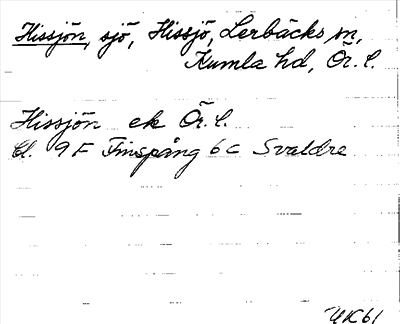 Hissjön, sjö, Hissjö, Lerbäcks sn,
Kumla hd, Ör. l.
Hissjön ek Ör. l.
Bl. 9F Finspång 6c Svaldre
UK61